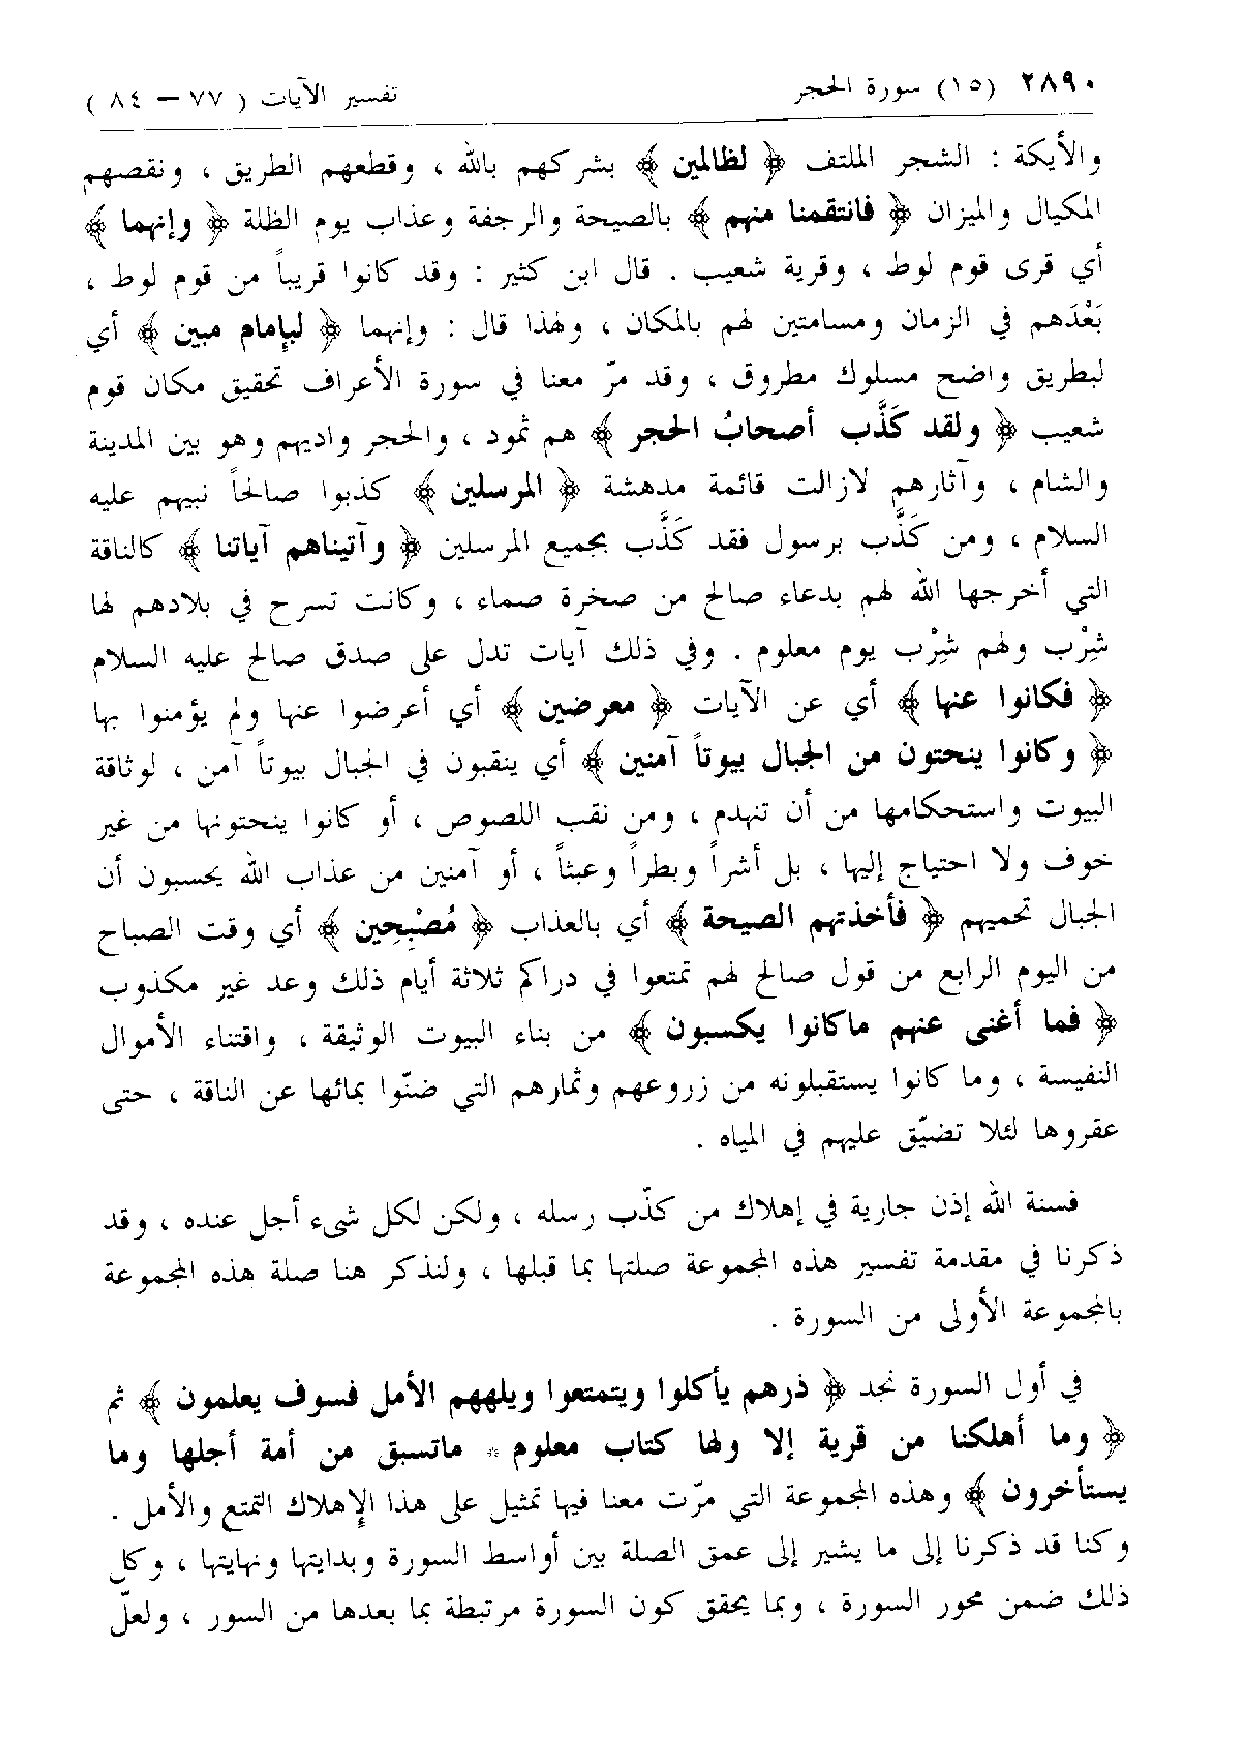 ٢٨٩٠ (١٥) سورة الحجر تفسير الآيات ( ٧٧ — ٨٤ )
والأيكة : الشجر الملتف ﴿ لظالمين ﴾ بشركهم بالله ، وقطعهم الطريق ، ونقصهم
المكيال والميزان ﴿ فانتقمنا منهم ﴾ بالصيحة والرجفة وعذاب يوم الظلة ﴿ وإنهما ﴾
أي قرى قوم لوط ، وقرية شعيب . قال ابن كثير : وقد كانوا قريباً من قوم لوط ،
بَعْدَهم في الزمان ومسامتين لهم بالمكان ، ولهذا قال : وإنهما ﴿ لبإمام مبين ﴾ أي
لبطريق واضح مسلوك مطروق ، وقد مرّ معنا في سورة الأعراف تحقيق مكان قوم
شعيب ﴿ ولقد كَذَّب أصحابُ الحجر ﴾ هم ثمود ، والحجر واديهم وهو بين المدينة
والشام ، وآثارهم لازالت قائمة مدهشة ﴿ المرسلين ﴾ كذبوا صالحاً نبيهم عليه
السلام ، ومن كَذَّب برسول فقد كَذَّب بجميع المرسلين ﴿ وآتيناهم آياتنا ﴾ كالناقة
التي أخرجها الله لهم بدعاء صالح من صخرة صماء ، وكانت تسرح في بلادهم لها
شِرْب ولهم شِرْب يوم معلوم . وفي ذلك آيات تدل على صدق صالح عليه السلام
﴿ فكانوا عنها ﴾ أي عن الآيات ﴿ معرضين ﴾ أي أعرضوا عنها ولم يؤمنوا بها
﴿ وكانوا ينحتون من الجبال بيوتاً آمنين ﴾ أي ينقبون في الجبال بيوتاً آمن ، لوثاقة
البيوت واستحكامها من أن تنهدم ، ومن نقب اللصوص ، أو كانوا ينحتونها من غير
خوف ولا احتياج إليها ، بل أشراً وبطراً وعبثاً ، أو آمنين من عذاب الله يحسبون أن
الجبال تحميهم ﴿ فأخذتهم الصيحة ﴾ أي بالعذاب ﴿ مُصْبِحِين ﴾ أي وقت الصباح
من اليوم الرابع من قول صالح لهم تمتعوا في داركم ثلاثة أيام ذلك وعد غير مكذوب
﴿ فما أغنى عنهم ماكانوا يكسبون ﴾ من بناء البيوت الوثيقة ، واقتناء الأموال
النفيسة ، وما كانوا يستقبلونه من زروعهم وثمارهم التي ضنّوا بمائها عن الناقة ، حتى
عقروها لئلا تضيّق عليهم في المياه .
فسنة الله إذن جارية في إهلاك من كذّب رسله ، ولكن لكل شىء أجل عنده ، وقد
ذكرنا في مقدمة تفسير هذه المجموعة صلتها بما قبلها ، ولنذكر هنا صلة هذه المجموعة
بالمجموعة الأولى من السورة .
في أول السورة نجد ﴿ ذرهم يأكلوا ويتمتعوا ويلههم الأمل فسوف يعلمون ﴾ ثم
﴿ وما أهلكنا من قرية إلا ولها كتاب معلوم * ماتسبق من أمة أجلها وما
يستأخرون ﴾ وهذه المجموعة التي مرّت معنا فيها تمثيل على هذا الإهلاك التمتع والأمل .
وكنا قد ذكرنا إلى ما يشير إلى عمق الصلة بين أواسط السورة وبدايتها ونهايتها ، وكل
ذلك ضمن محور السورة ، وبما يحقق كون السورة مرتبطة بما بعدها من السور ، ولعلّ